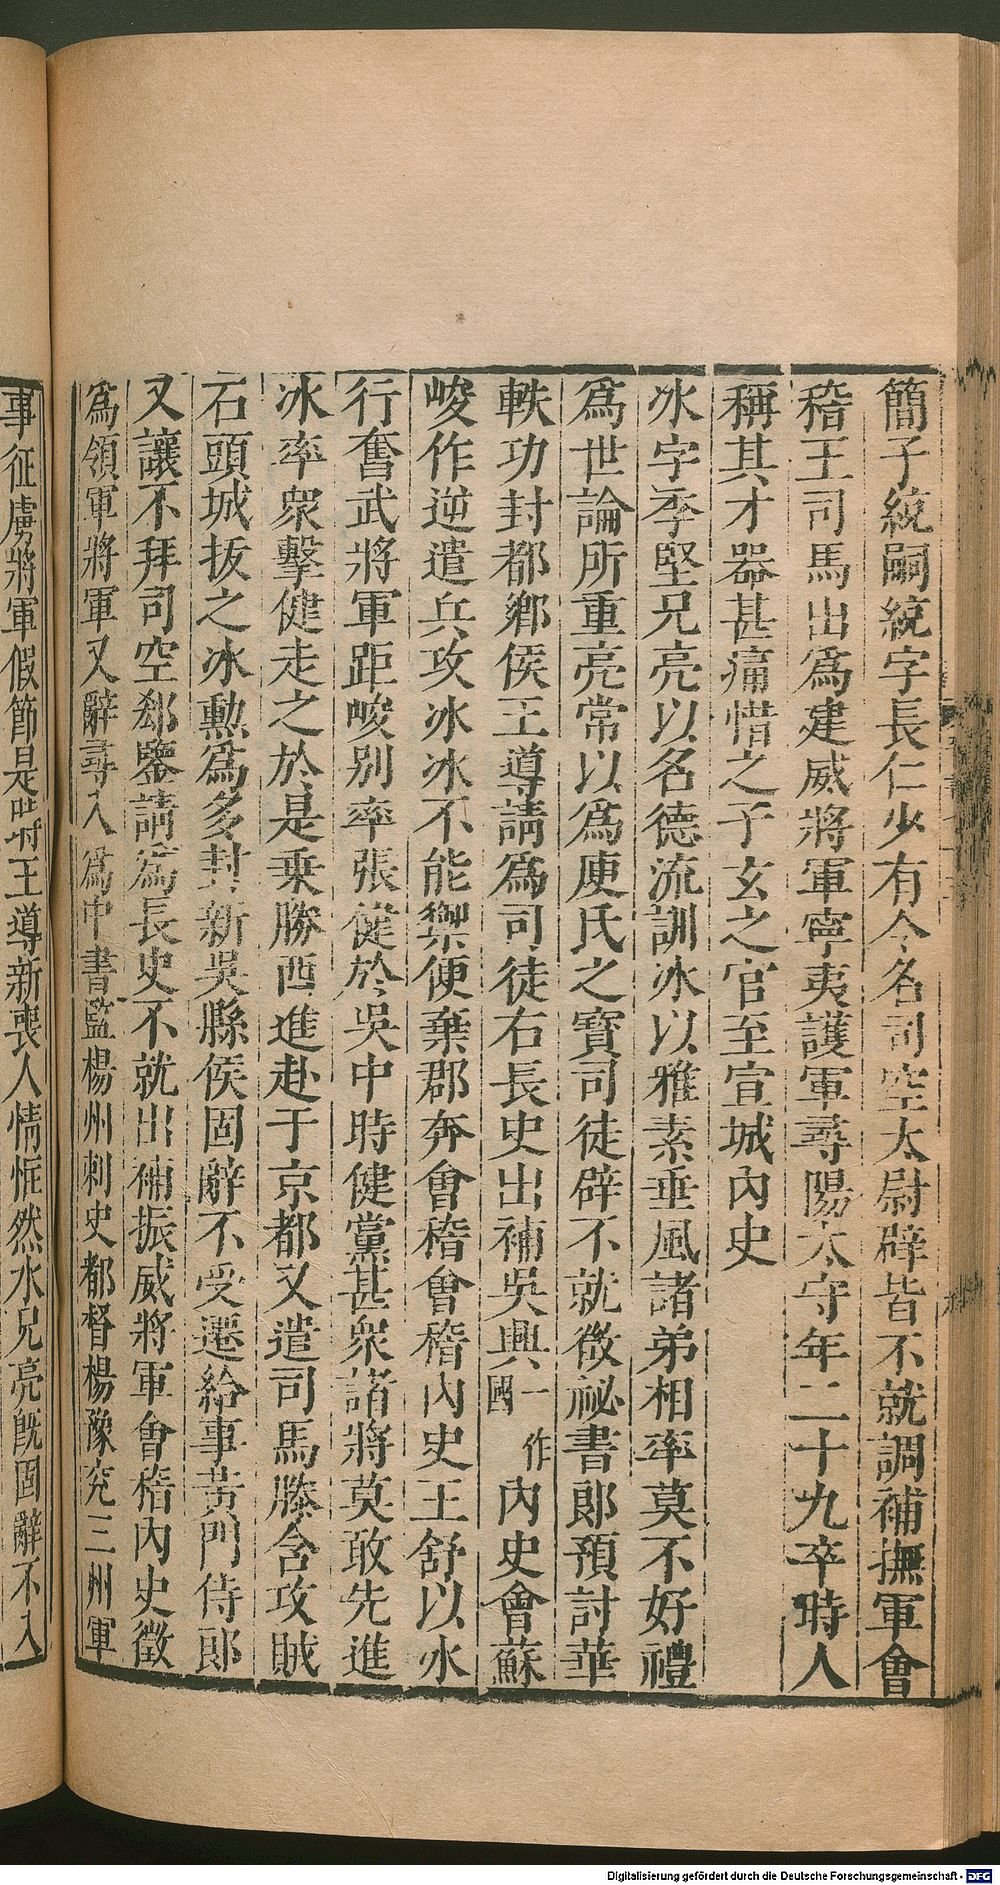 簡子統嗣統字長仁少有令名司空太尉辟皆不就調補撫軍會
稽王司馬出爲建威將軍寧夷護軍尋陽太守年二十九卒時人
稱其才器甚痛惜之子玄之官至宣城內史
冰字季堅兄亮以名德流訓冰以雅素垂風諸弟相率莫不好禮
爲世論所重亮常以爲庾氏之寶司徒辟不就徵祕書郎預討華
軼功封都鄉侯王導請爲司徒右長史出補吳興一作國內史會蘇
峻作逆遣兵攻冰冰不能禦便棄郡奔會稽會稽內史王舒以冰
行奮武將軍距峻别率張健於吳中時健黨甚衆諸將莫敢先進
冰率衆擊健走之於是乗勝西進赴于京都又遣司馬滕含攻賊
石頭城拔之冰勲爲多封新吳縣侯固辭不受遷給事黄門侍郎
又讓不拜司空郄鑒請爲長史不就出補振威將軍會稽內史徵
爲領軍將軍又辭尋入爲中書監楊州刺史都督楊豫兖三州軍
事征虜將軍假節是時王導新喪人情恇然冰兄亮旣固辭不入
Digitalisierung gefördert durch die Deutsche Forschungsgemeinschaft - DFG